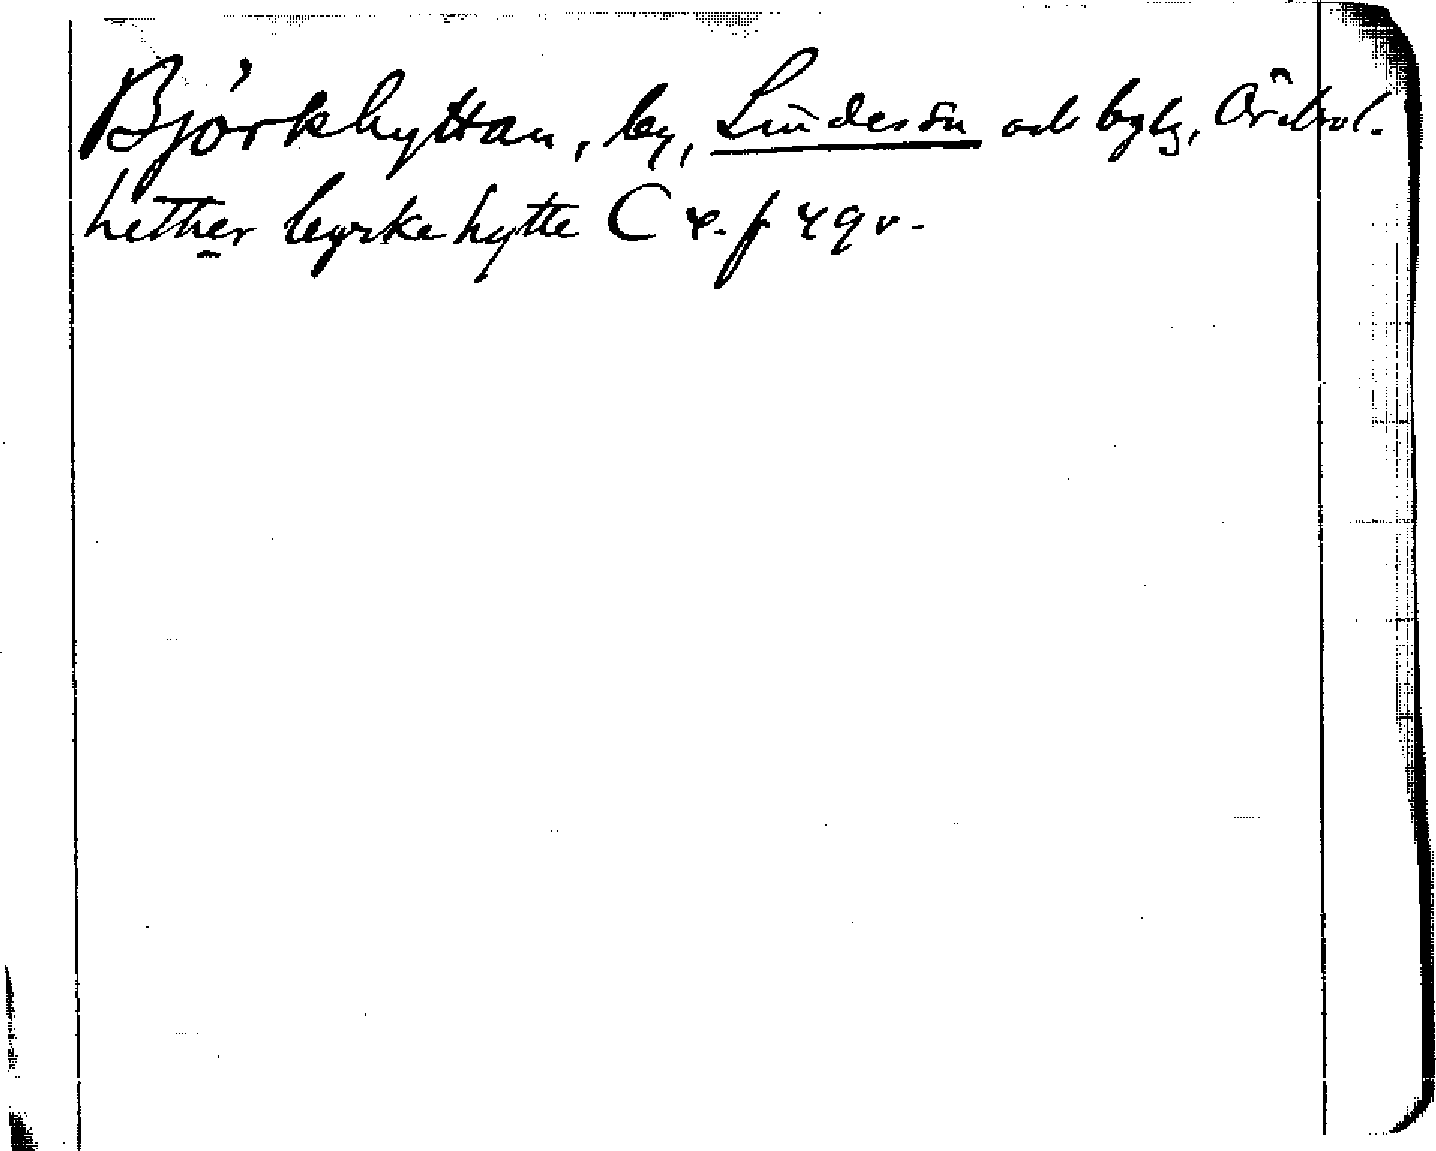 Björkhyttan, by, Lindesbn och bglg, Örebrol.
hether byrkehytte C 4. f 49 v.